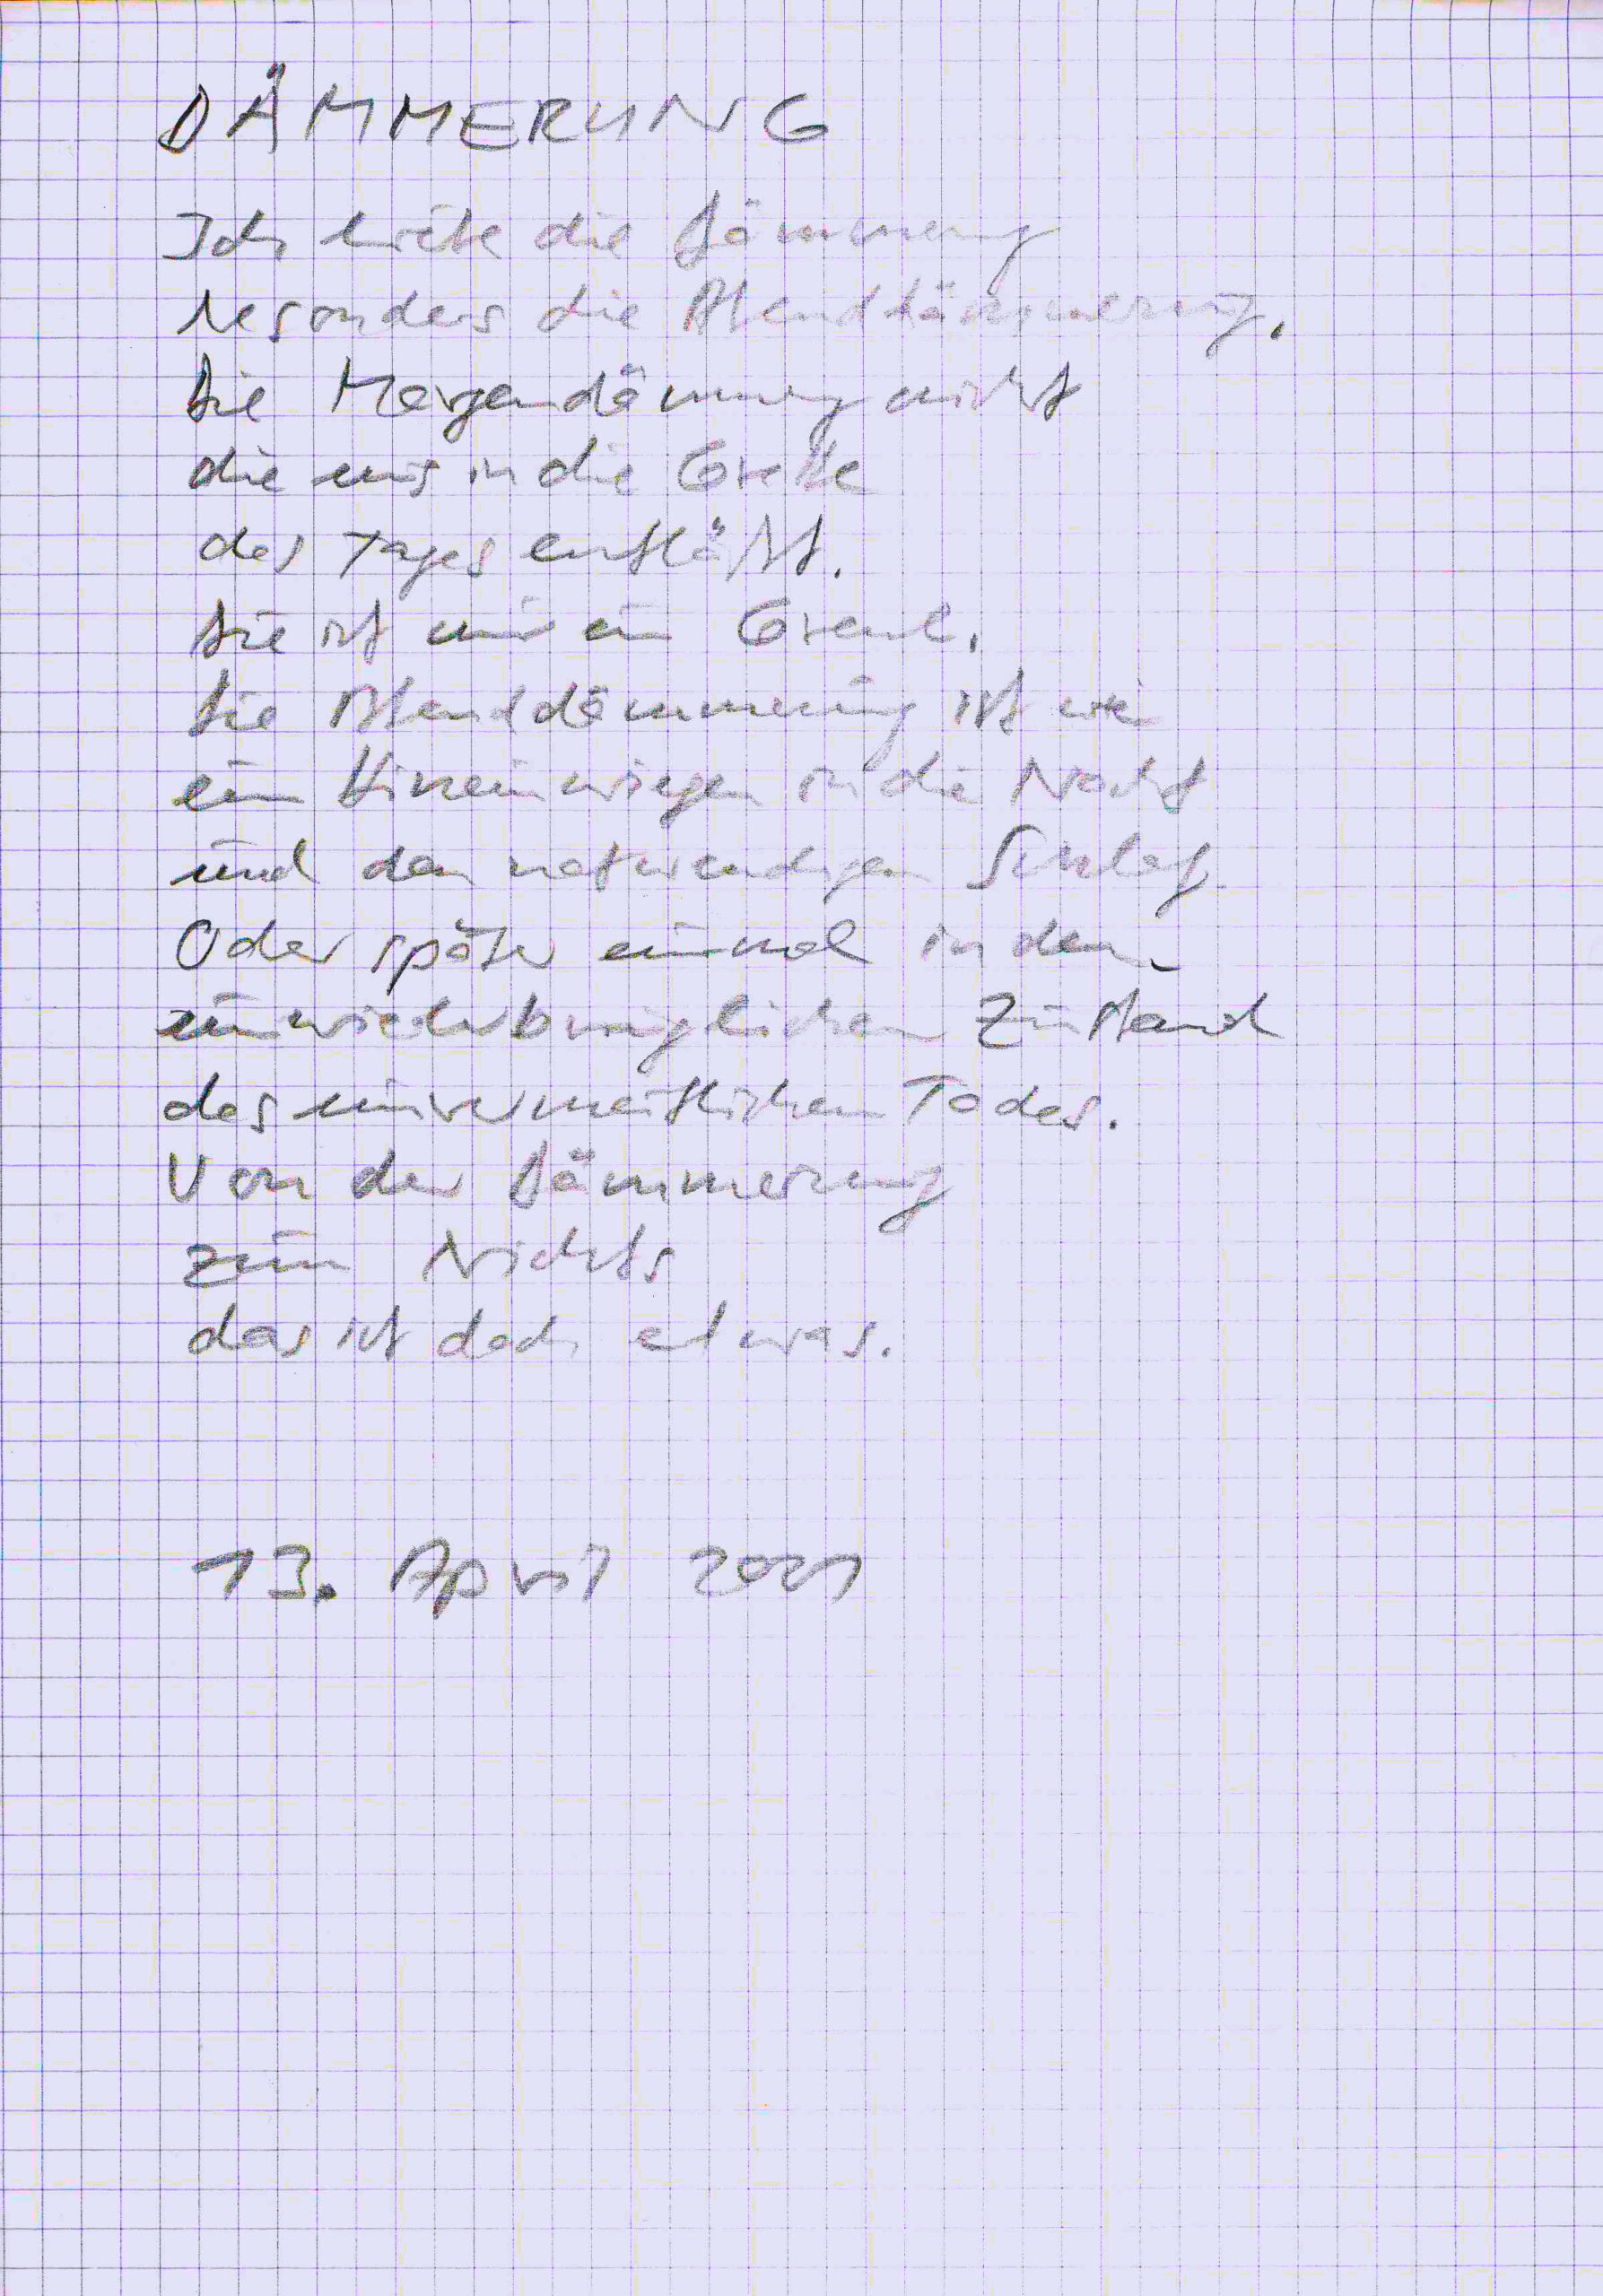 DÄMMERUNG
Ich liebe die Dämmerung
besonders die Abenddämmerung.
Die Morgendämmerung nicht
die uns in die Grelle
des Tages entläßt.
Die ist mir ein Greul.
Die Abenddämmerung ist wie
ein Hineinwiegen in die Nacht
und den notwendigen Schlaf
Oder später einmal in den
unwiederbringlichen Zustand
des unvermeitlichen Todes.
Von der Dämmerung
zum Nichts
das ist doch etwas.
13. April 2021